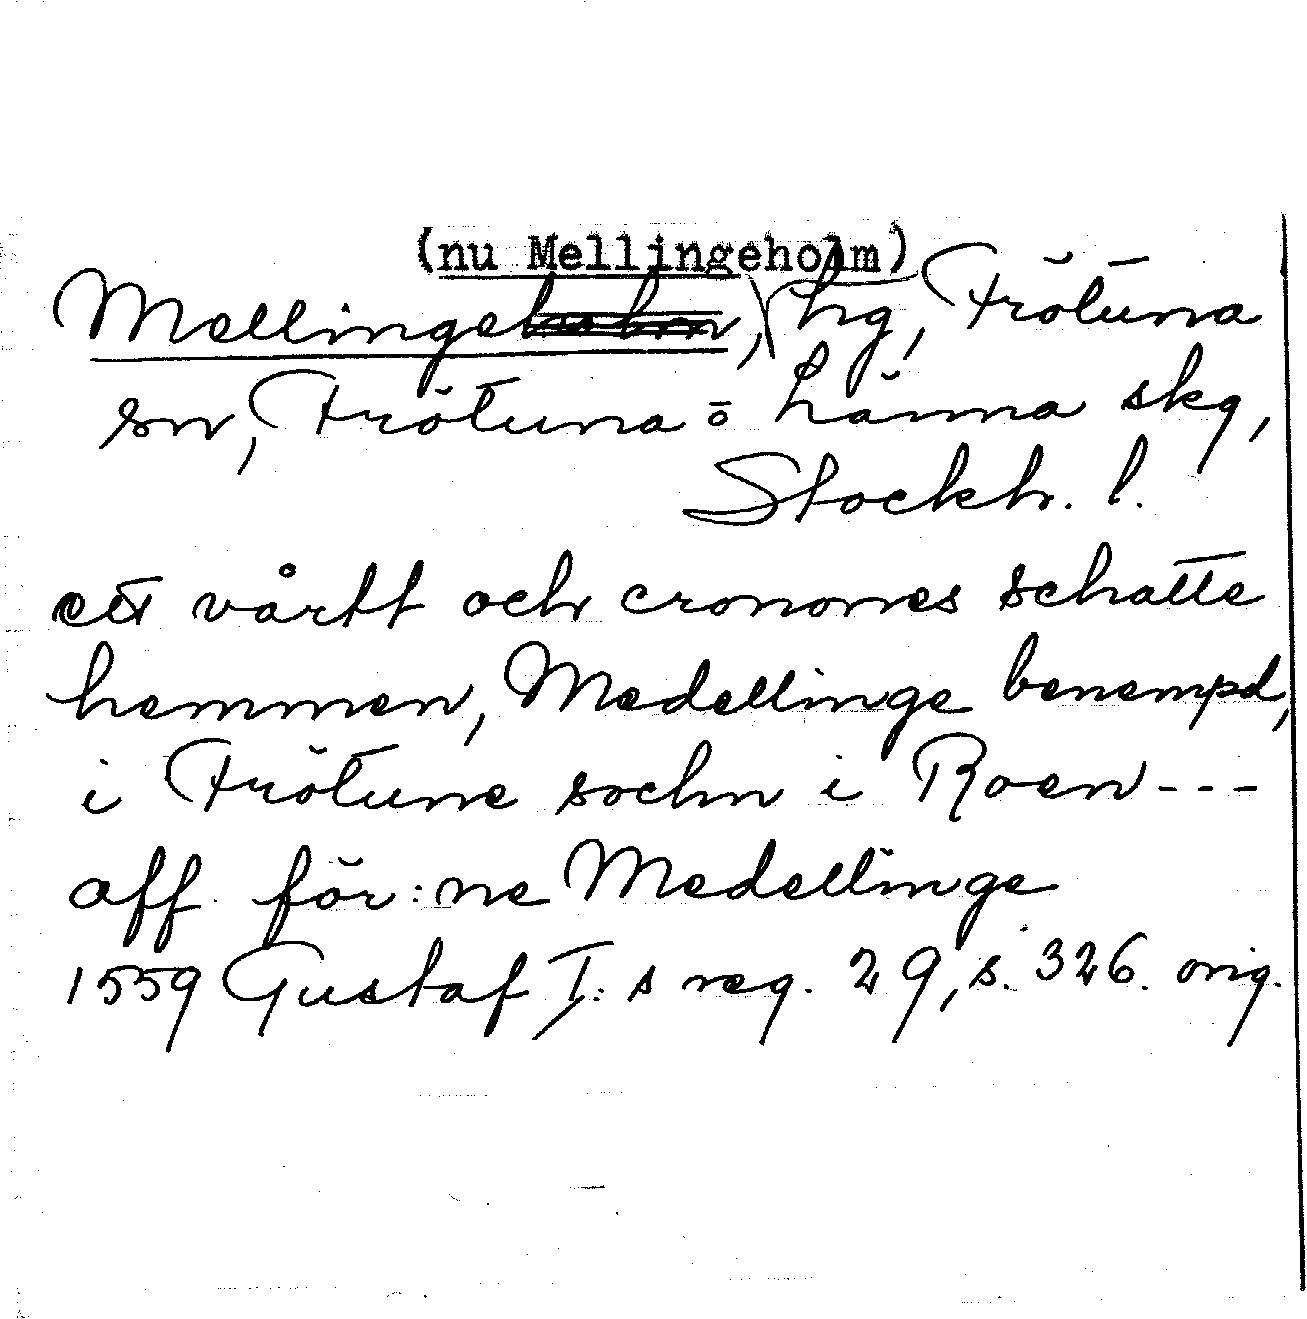 (nu Mellingeholm)
Mellingeholm, hg, Frötuna
sn, Frötuna o Länna skg,
Stockh. l.
ett vårtt och cronones schatte
hemmen, Medellinge benempd,
i Frötune sochn i Roen ---
aff för:ne Medellinge
1559 Gustaf I:s reg. 29, s. 326. orig.